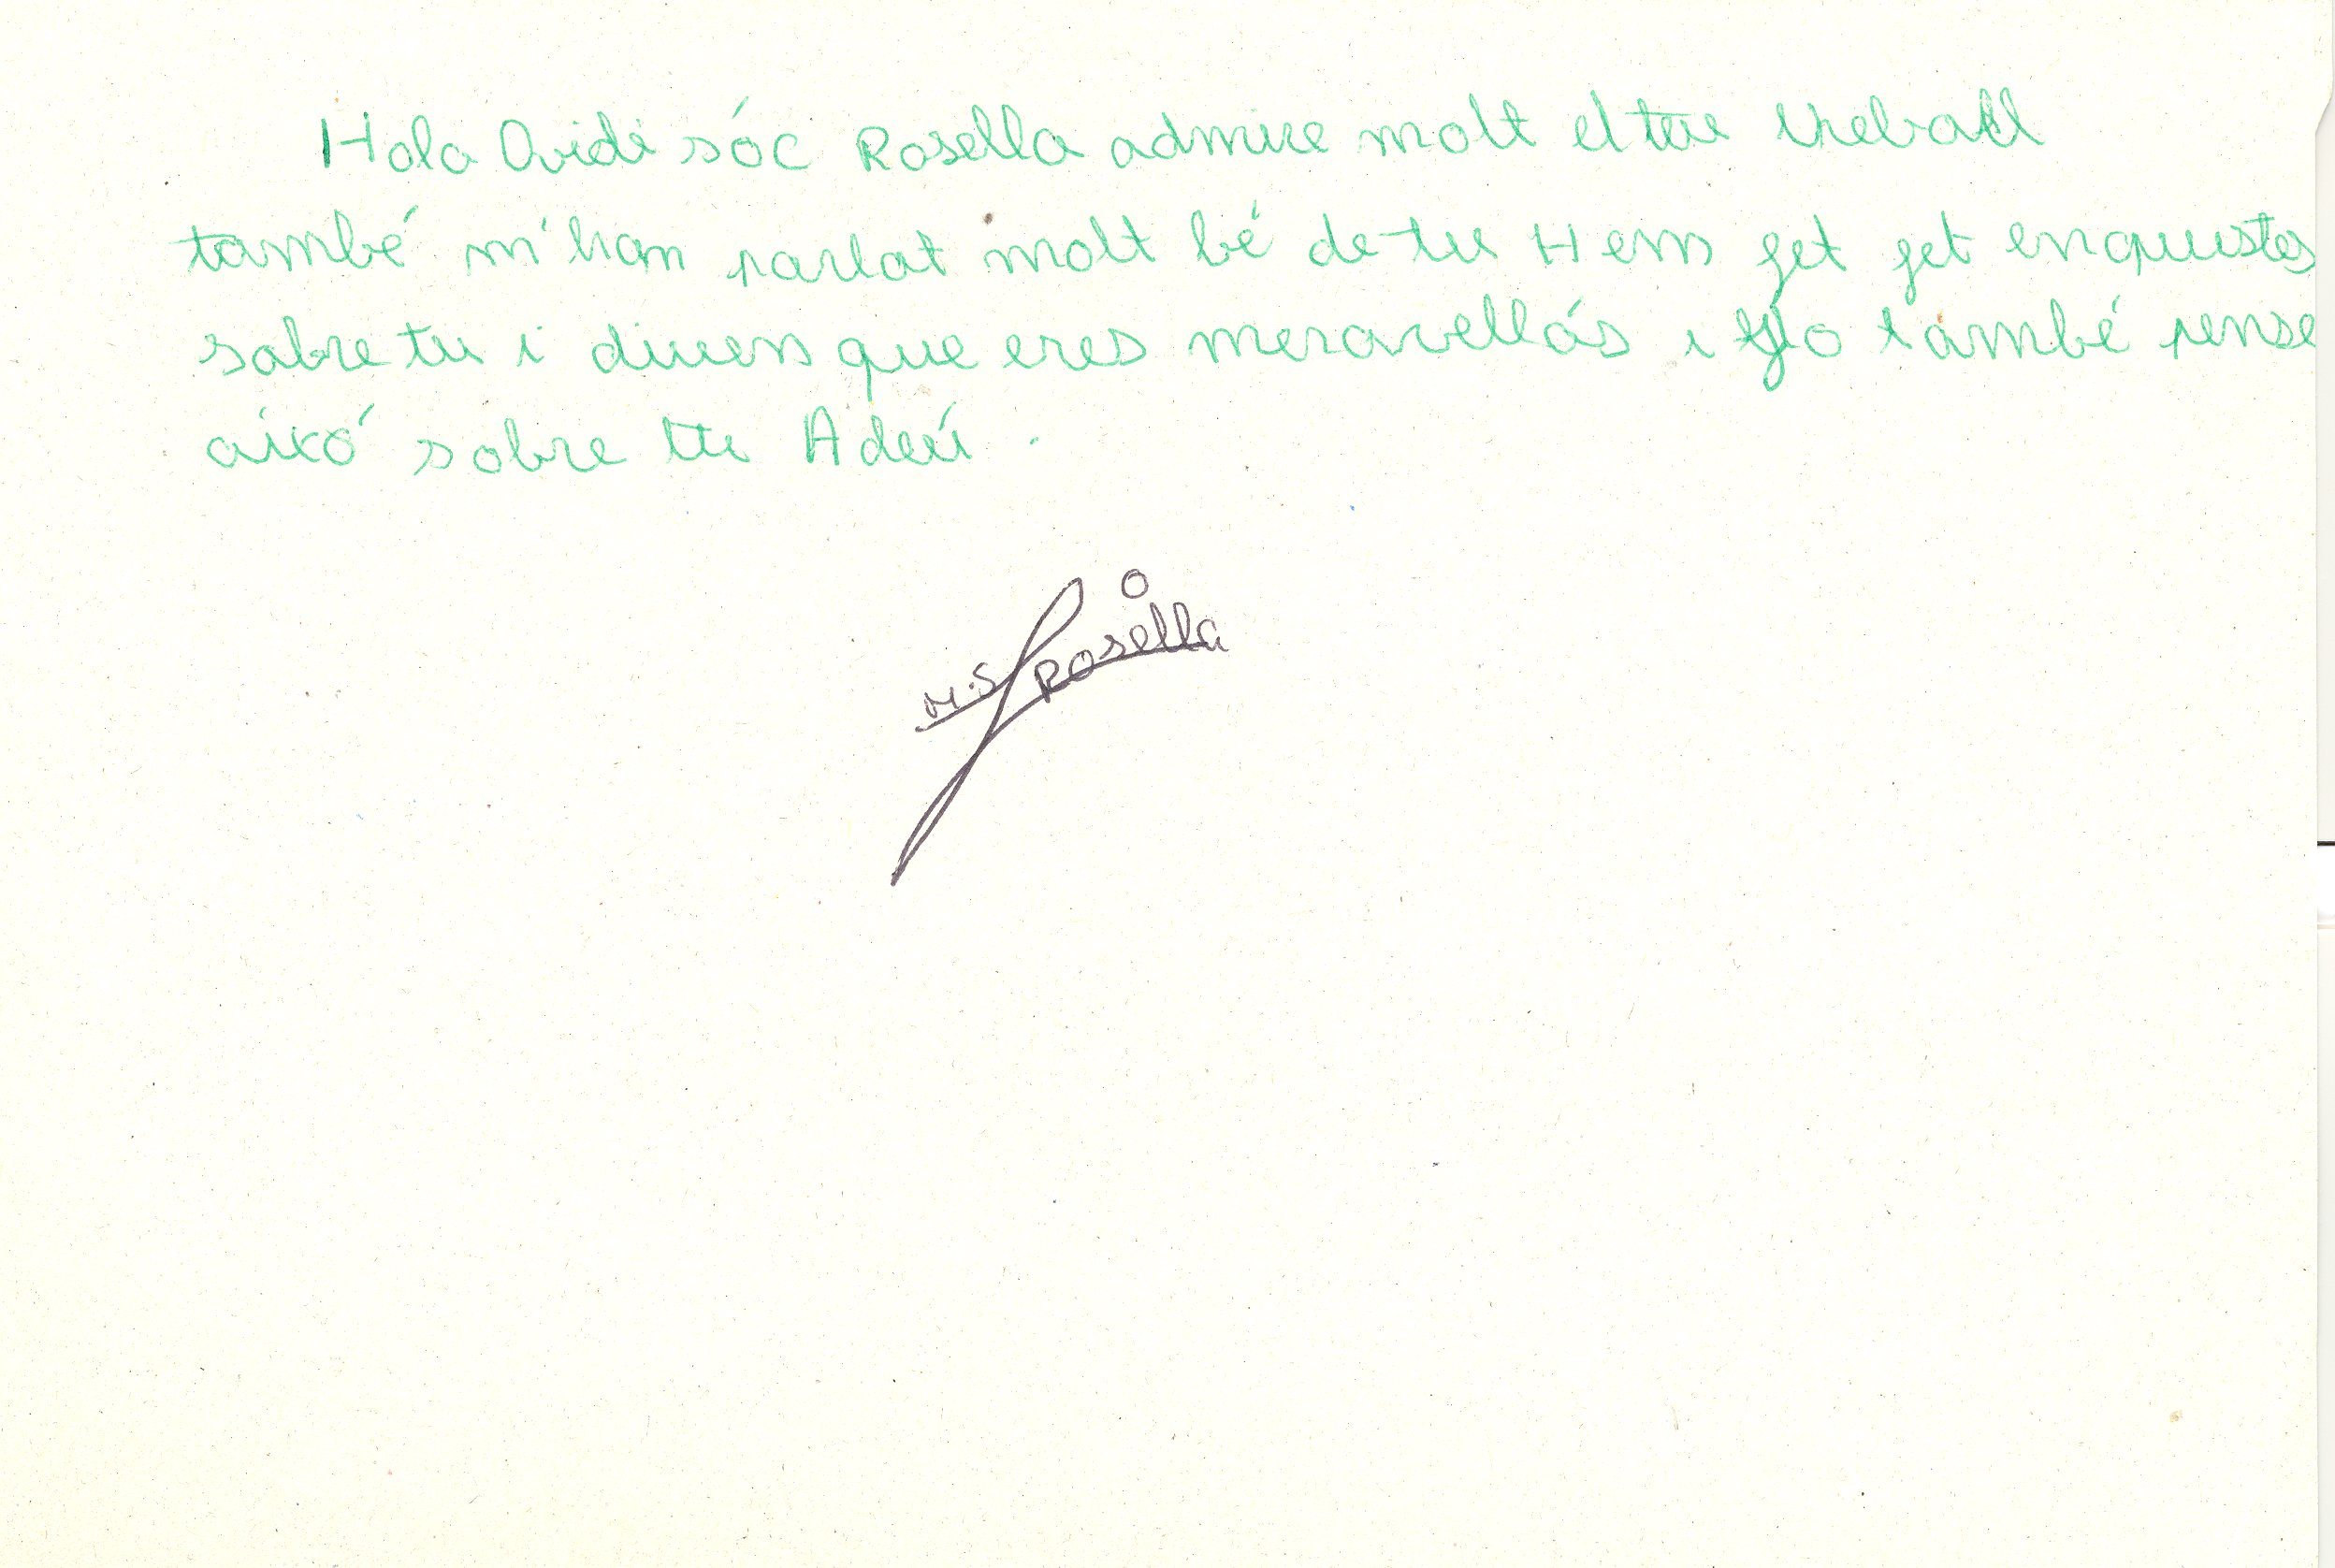 Hola Ovidi sóc Rosella admire molt el teu treball
també m'han parlat molt bé de tu Hem fet fet enquestes
sobre tu i diuen que eres meravellós i jo també pense
aixó sobre tu Adeú.
M.S Rosella